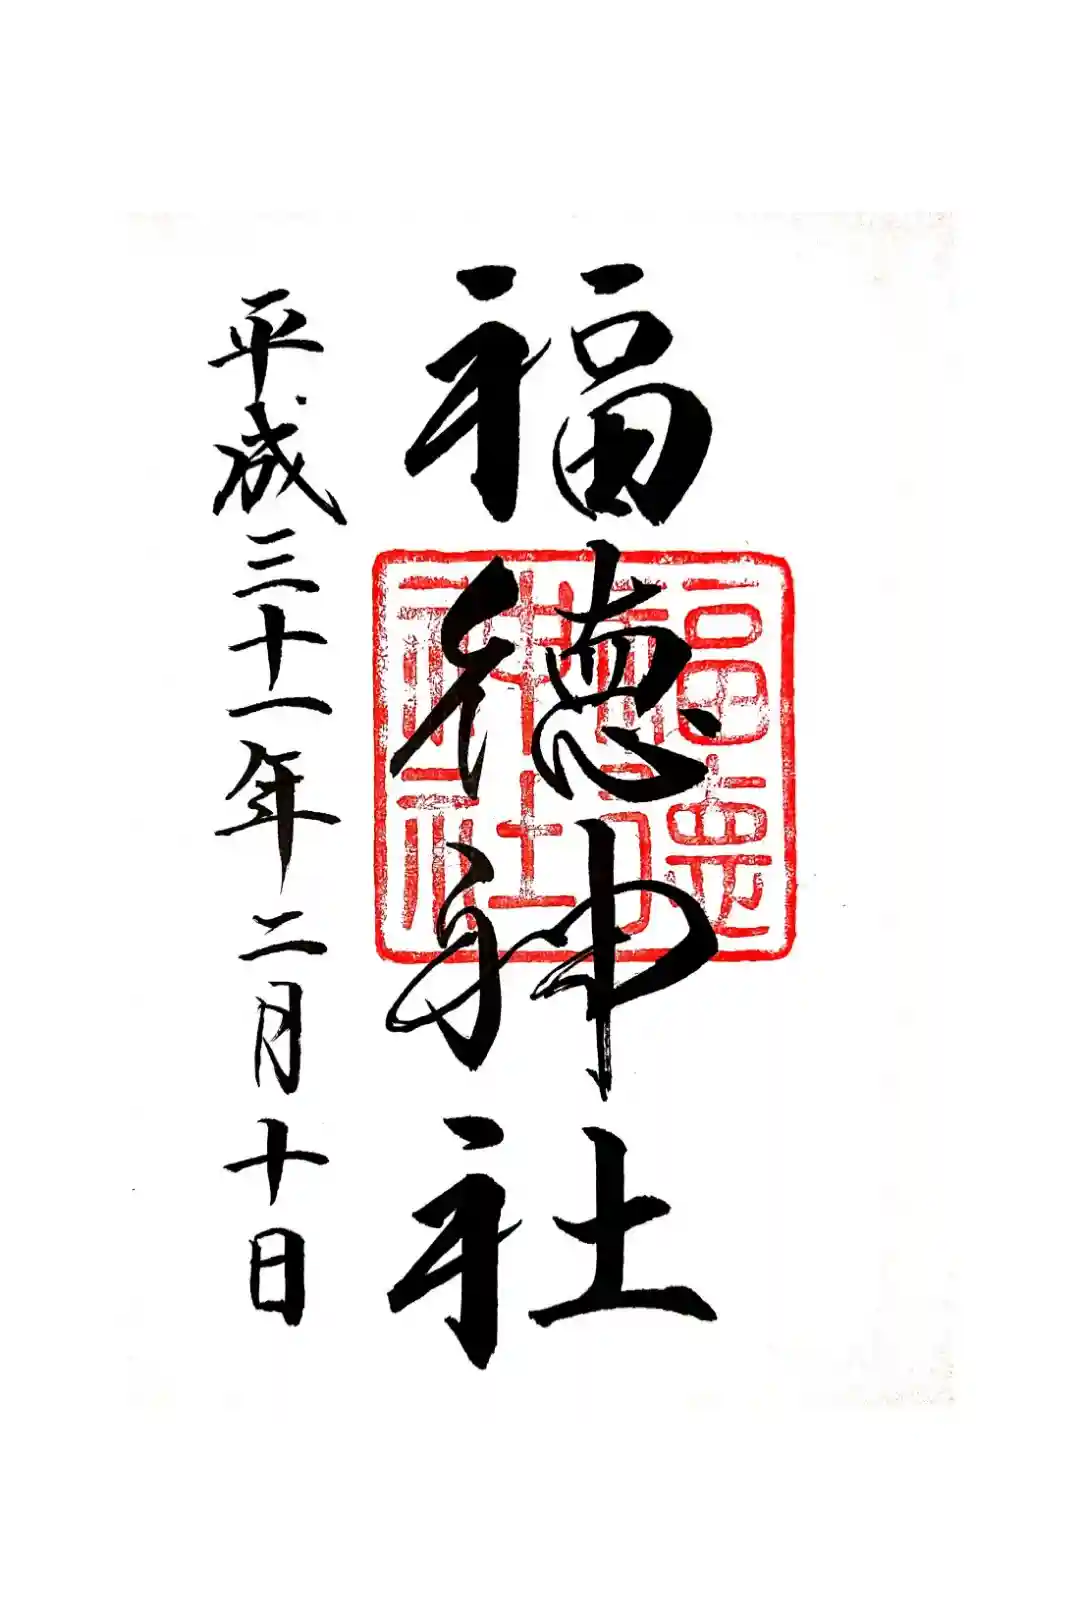 福徳神社
福徳神社
平成三十一年二月十日